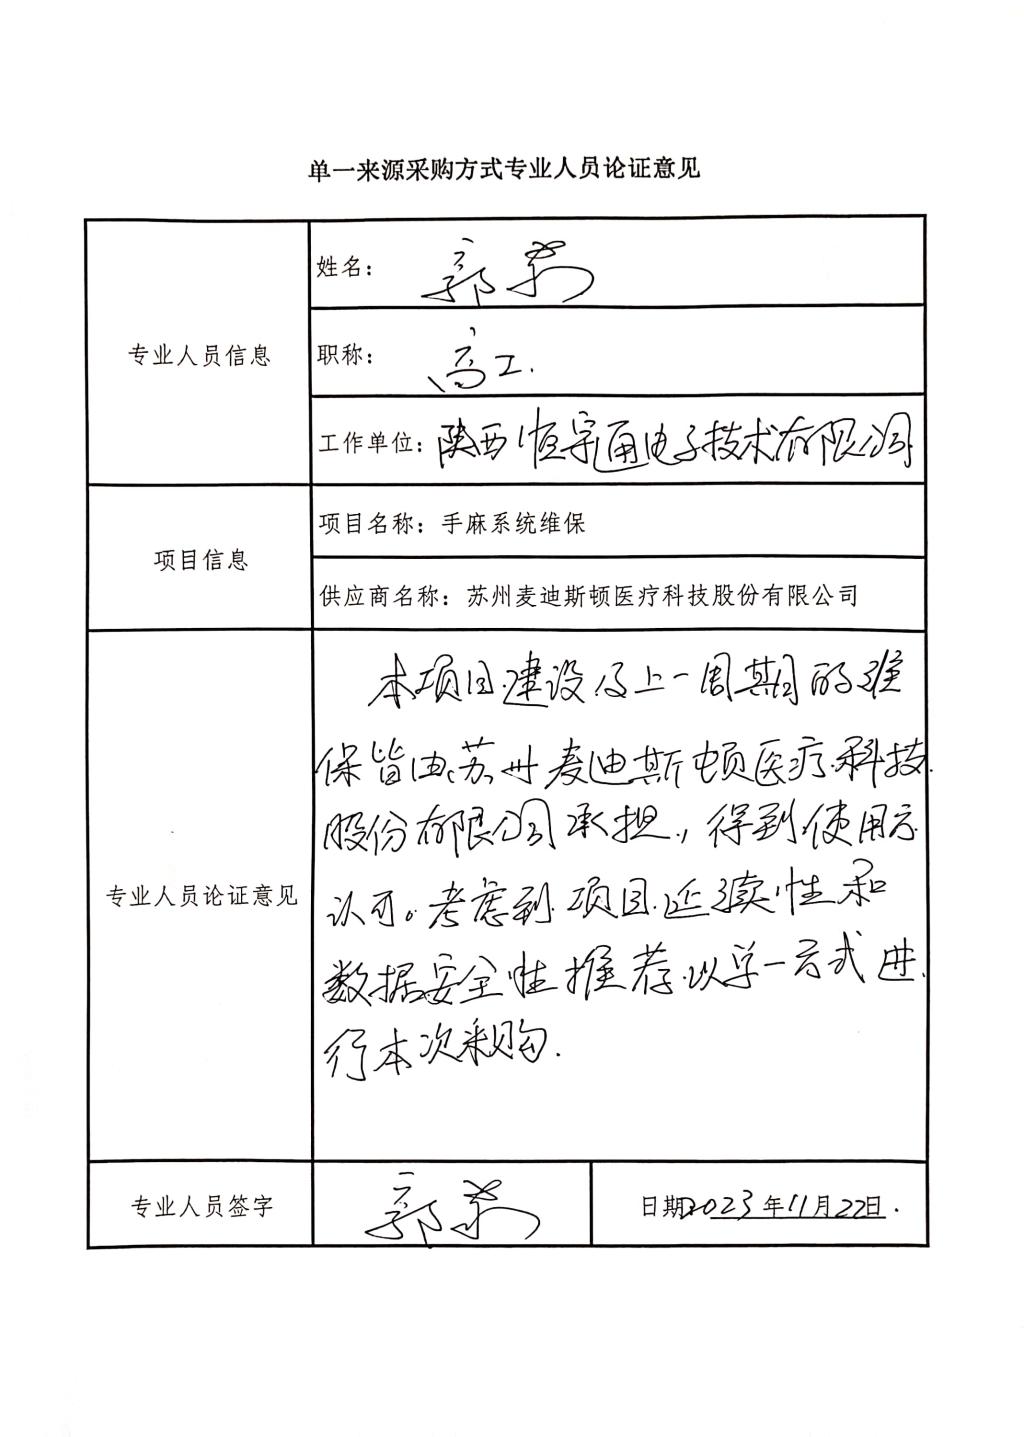 单一来源采购方式专业人员论证意见
专业人员信息
姓名：郭
职称：高工.
工作单位：陕西恒宇通电子技术有限公司
项目信息
项目名称：手麻系统维保
供应商名称：苏州麦迪斯顿医疗科技股份有限公司
专业人员论证意见
本项目建设及上一周期的维
保皆由苏州麦迪斯顿医疗科技
股份有限公司承担，得到使用方
认可。考虑到项目延续性和
数据安全性推荐以单一方式进
行本次采购.
专业人员签字
郭
日期2023年11月22日.